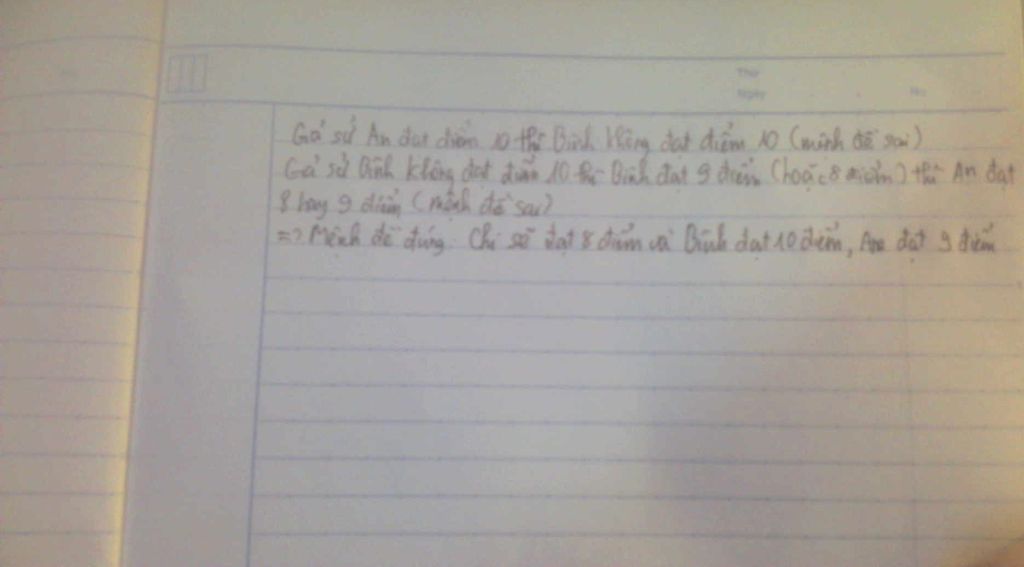 Thứ
Ngày No
Gả sử An đạt điểm 10 thì Bình không đạt điểm 10 (mệnh đề sai)
Gả sử Bình không đạt điểm 10 thì Bình đạt 9 điểm (hoặc 8 điểm) thì An đạt
8 hay 9 điểm (mệnh đề sai)
=> Mệnh đề đúng: Chi sẽ đạt 8 điểm và Bình đạt 10 điểm, An đạt 9 điểm